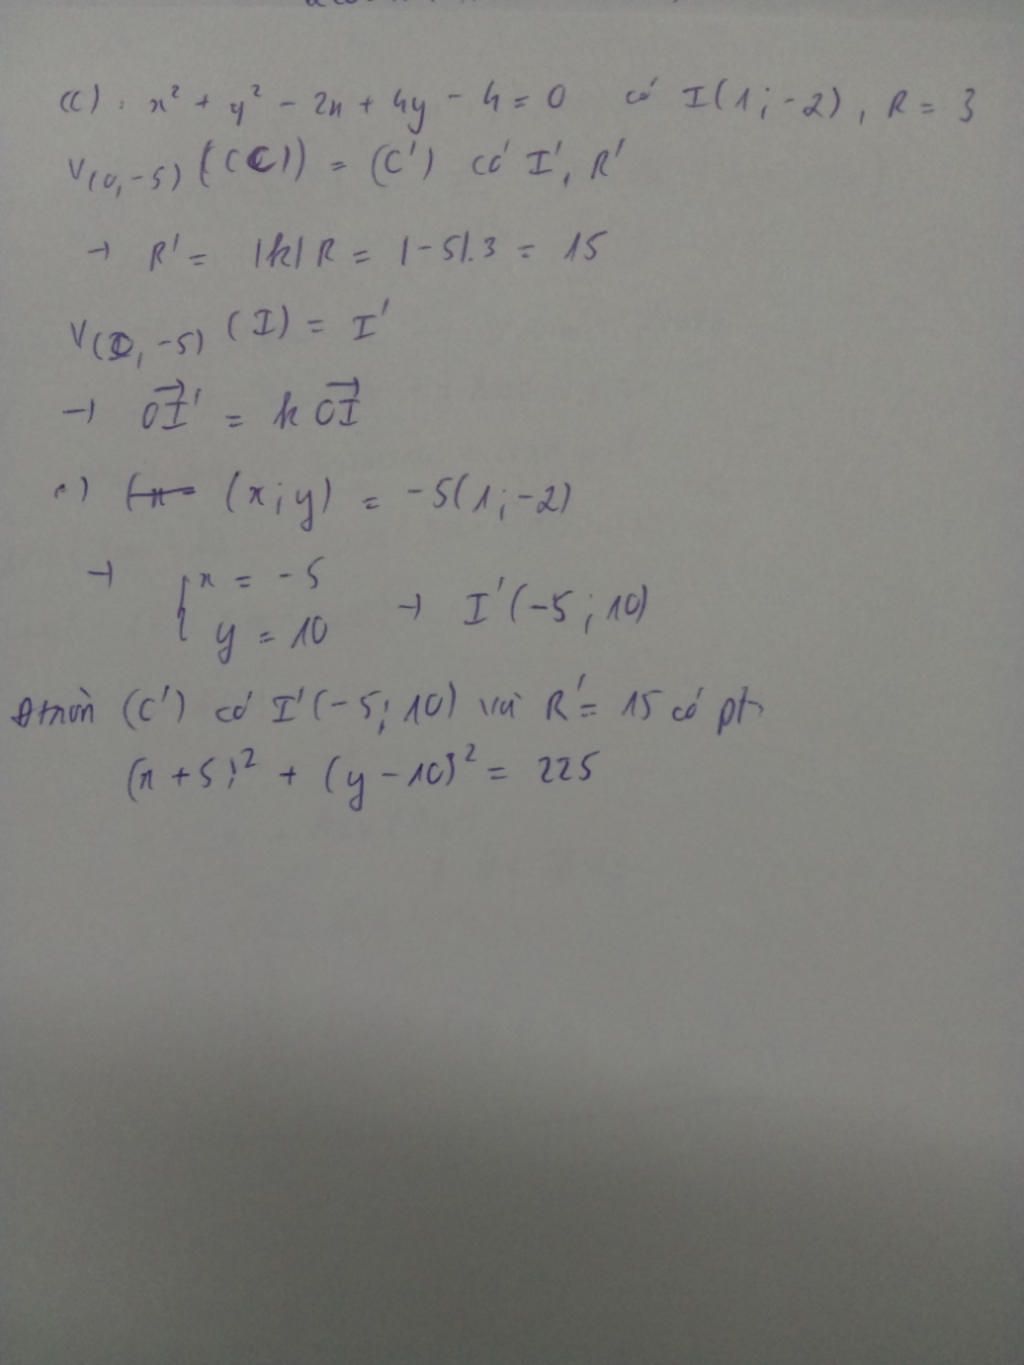 (C): x² + y² - 2x + 4y - 4 = 0 có I(1; -2), R = 3
V(0, -5) ((C)) = (C') có I', R'
→ R' = |k| R = |-5|.3 = 15
V(O, -5) (I) = I'
→ OI' = k OI
(x; y) = -5(1; -2)
→ { x = -5
y = 10 → I'(-5; 10)
(C') có I'(-5; 10) và R' = 15 có pt
(x + 5)² + (y - 10)² = 225